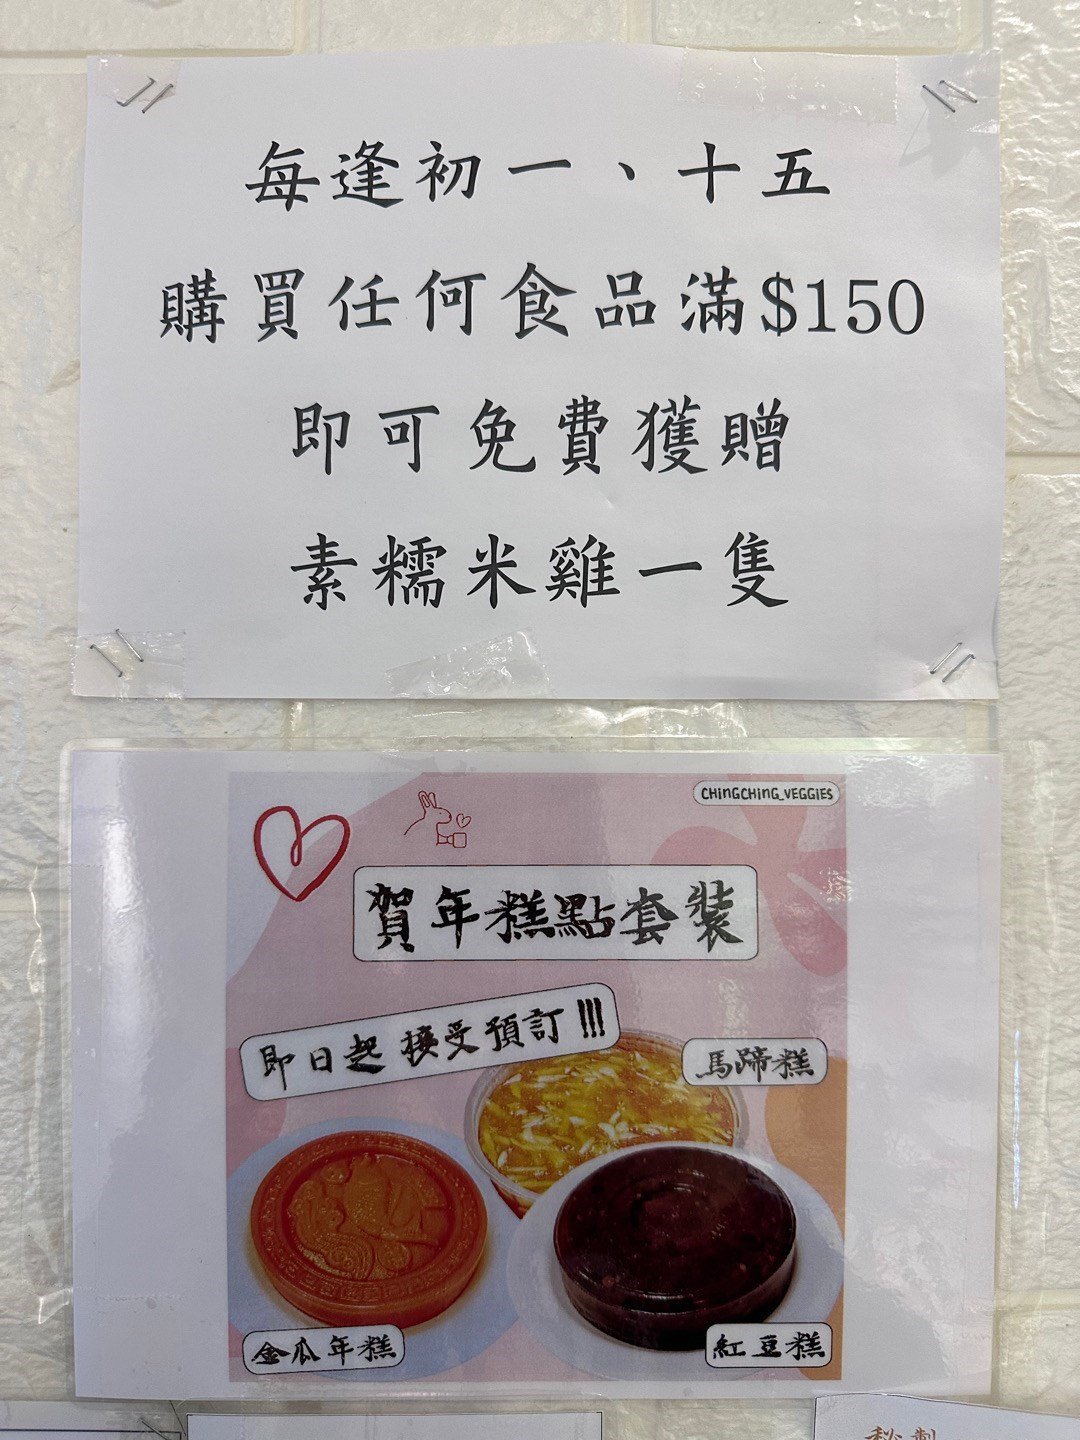 每逢初一、十五
購買任何食品滿$150
即可免費獲贈
素糯米雞一隻
CHINGCHING_VEGGIES
賀年糕點套裝
即日起接受預訂!!!
馬蹄糕
金瓜年糕
紅豆糕